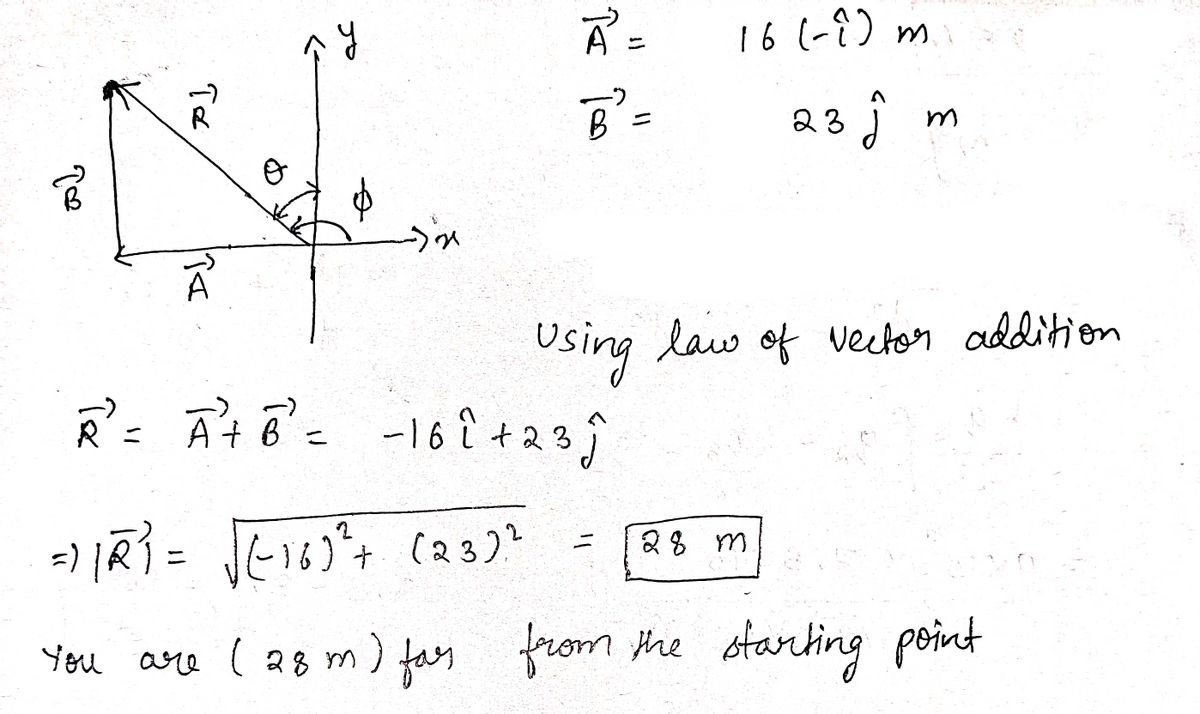 y
A⃗ = 16 (-î) m
R⃗
B⃗ = 23 ĵ m
θ
B⃗
ϕ
x
A⃗
Using law of vector addition
R⃗ = A⃗ + B⃗ = -16 î + 23 ĵ
=) |R⃗| = √(-16)² + (23)² = 28 m
You are (28 m) far from the starting point